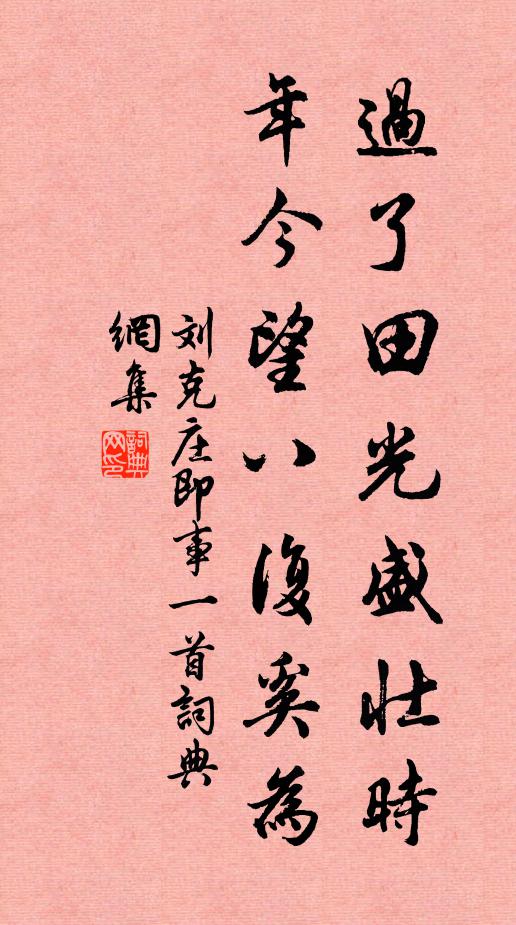 過了田光盛壯時
年今望八復奚為
刘克庄即事一首詞典
網集
詞典網印